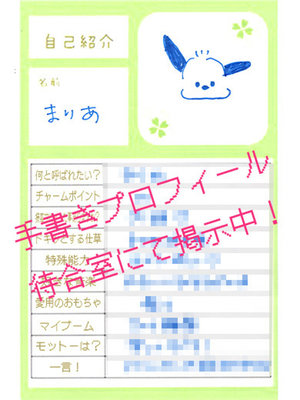 自己紹介
名前
まりあ
何と呼ばれたい?
チャームポイント
ドキッとする仕草
特殊能力
愛用のおもちゃ
マイブーム
モットーは?
一言!
手書きプロフィール
待合室にて掲示中!